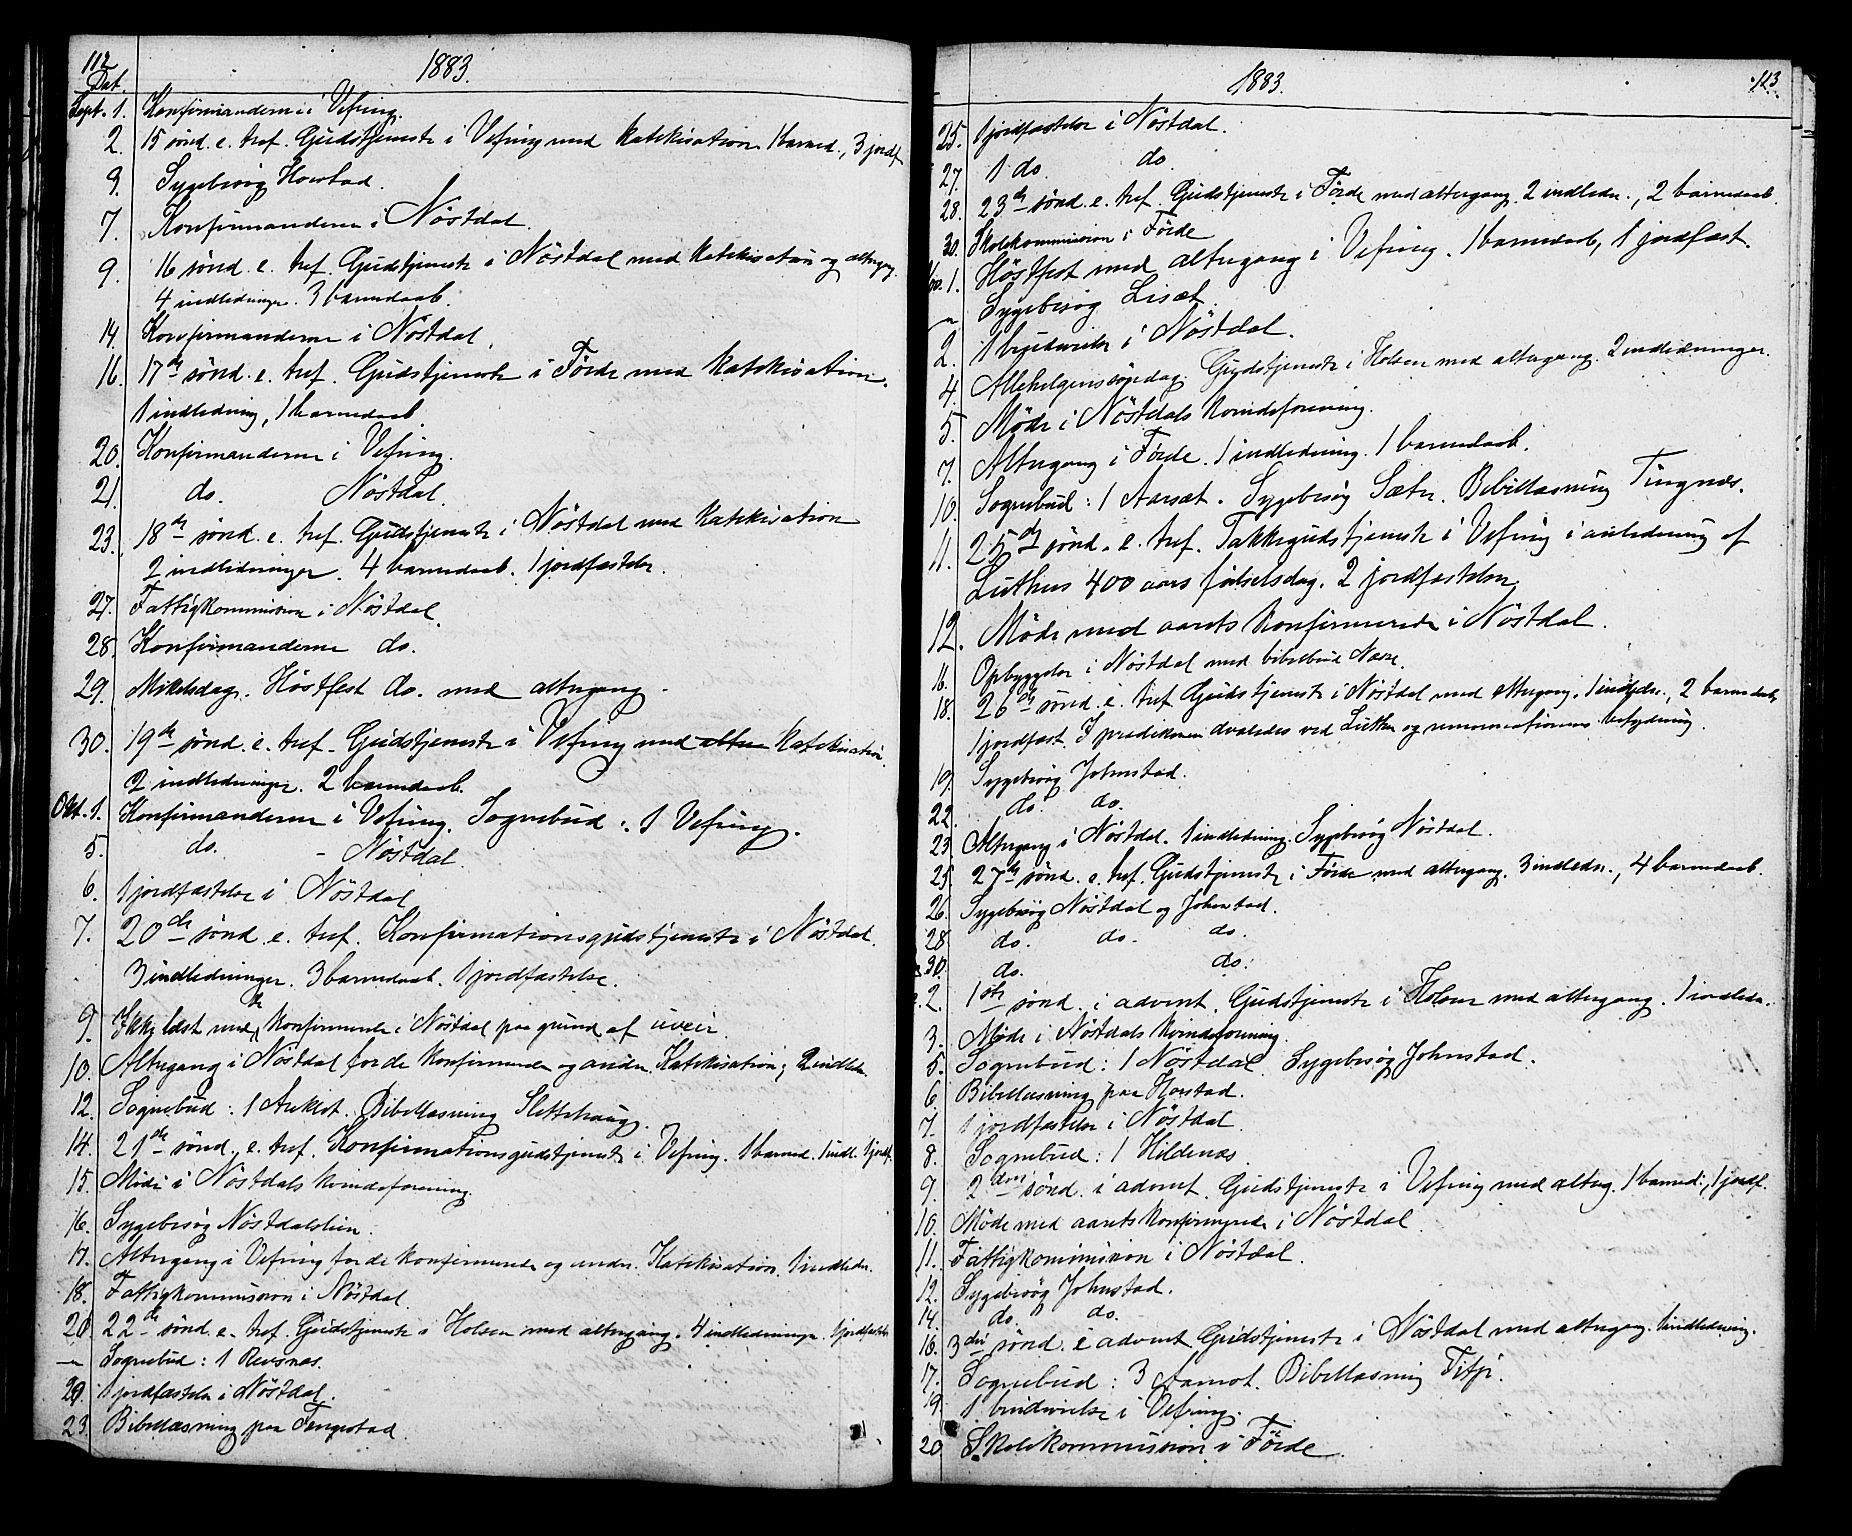 112
1883.
Dat.
Sept. 1. Konfirmanderne i Vefring.
2. 15 sönd. e. tref. Gudstjeneste i Vefring med katekisation. 1 barned., 3 jordf.
3. Sygebesög Horstad.
7. Konfirmanderne i Nöstdal.
9. 16 sönd. e. tref. Gudstjeneste i Nöstdal med katekisation og altergang.
4 indledninger. 3 barnedaab.
14. Konfirmanderne i Nöstdal.
16. 17de sönd. e. tref. Gudstjeneste i Förde med katekisation.
1 indledning, 1 barnedaab.
20. Konfirmanderne i Vefring.
21 do. Nöstdal.
23. 18de sönd. e. tref. Gudstjeneste i Nöstdal med katekisation
2 indledninger. 4 barnedaab. 1 jordfæstelse.
27. Fattigkommission i Nöstdal.
28. Konfirmanderne do.
29. Mikelsdag. Höstfest do. med altergang.
30. 19de sönd. e. tref. Gudstjeneste i Vefring med alter katekisation.
2 indledninger. 2 barnedaab.
Okt. 1. Konfirmanderne i Vefring. Sognebud: 1 Vefring.
5. do. - Nöstdal.
6. 1 jordfæstelse i Nöstdal
7. 20de sönd. e. tref. Konfirmationsgudstjeneste i Nöstdal.
3 indledninger. 3 barnedaab. 1 jordfæstelse.
9. Ikke læst med de konfirmerede i Nöstdal paa grund af uveir.
10. Altergang i Nöstdal for de konfirmerede og andre. Katekisation; 2 indledn.
12. Sognebud: 1 Anklot. Bibellæsning Slettehaug.
14. 21de sönd. e. tref. Konfirmationsgudstjeneste i Vefring. 1 barned. 1 indl. 1 jordf.
15. Möde i Nöstdals kvindeforening.
16. Sygebesög Nöstdalslien.
17. Altergang i Vefring for de konfirmerede og andre. Katekisation. 1 indledn.
18. Fattigkommission i Nöstdal.
21 22de sönd. e. tref. Gudstjeneste i Holsen med altergang. 4 indledninger. 1 jordfæstelse
" Sognebud: 1 Revsnæs.
1 jordfæstelse i Nöstdal.
23. Bibellæsning paa Tengestad.
1883.
113
25. 1 jordfæstelse i Nöstdal.
27. 1 do. do
28. 23de sönd. e. tref. Gudstjeneste i Förde med altergang. 2 indledn., 2 barnedaab.
30. Skolekommission i Förde
Nov. 1. Höstfest med altergang i Vefring. 1 barnedaab, 1 jordfæst.
" Sygebesög Lisæt.
2. 1 i Nöstdal.
4. Allehelgenssöndag. Gudstjeneste i Holsen med altergang. 2 indledninger.
5. Möde i Nöstdals kvindeforening.
7. Altergang i Förde. 1 indledning. 1 barnedaab.
10. Sognebud: 1 Aarsæt. Sygebesög Sæter. Bibellæsning Tingnæs.
11. 25de sönd. e. tref. Takkegudstjeneste i Vefring i anledning af
Luthers 400 aars födselsdag. 2 jordfæstelser.
12. Möde med aarets konfirmerede i Nöstdal.
16. Opbyggelse i Nöstdal med bibelbud Næss.
18. 26de sönd. e. tref. Gudstjeneste i Nöstdal med altergang. 1 indledn., 2 barnedaab
1 jordfæst. I prædikenen dvæledes ved Luther og reformationens betydning.
19. Sygebesög Johnstad.
22. do. do.
23 Altergang i Nöstdal. 1 indledning. Sygebesög Nöstdal.
25. 27de sönd. e. tref. Gudstjeneste i Förde med altergang. 3 indledn., 4 barnedaab.
26. Sygebesög Nöstdal og Johnstad.
28 do. do. do.
30. do. do.
2. 1ste sönd. i advent. Gudstjeneste i Holsen med altergang. 1 indledn.
3. Möde i Nöstdals kvindeforening.
5. Sognebud: 1 Nöstdal. Sygebesög Johnstad.
6 Bibellæsning paa Horstad.
7. 1 jordfæstelse i Nöstdal.
8. Sognebud: 1 Hildenæs.
9. 2den sönd. i advent. Gudstjeneste i Vefring med alterg. 1 barned., 1 jordf.
10. Möde med aarets konfirmerede i Nöstdal.
11. Fattigkommission i Nöstdal.
12. Sygebesög Johnstad.
14. do. do.
16. 3die sönd. e advent Gudstjeneste i Nöstdal med altergang. 1 indledning.
17. Sognebud: 3 Aamot. Bibellæsning
19 1 i Vefring.
20 Skolekommission i Förde.